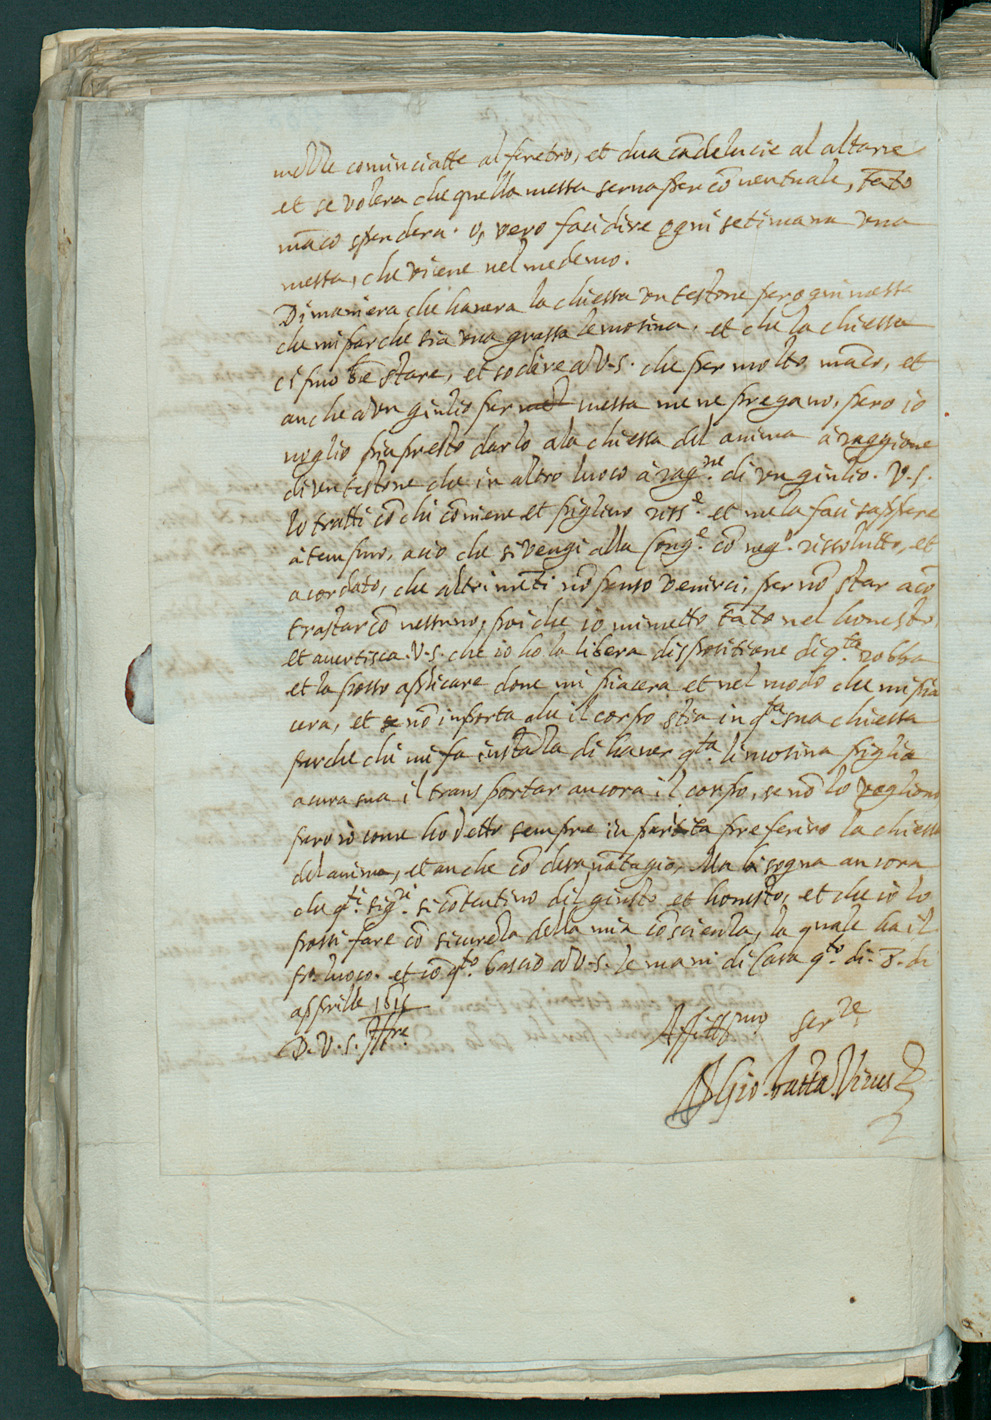 melle cominciatte al feretro, et dua cādelucie al altare
et se volera che quella messa serva per cōventuale, tāto
māco spendera. o, vero faci dire ogni setimana una
messa, che viene nel medemo.
Di maniera che havera la chiessa un testone per ogni messa
che mi par che sia una grassa lemosina. et che la chiessa
ci può bē stare, et so dire a V.S. che per molto māco, et
anche a un giulio per messa me ne pregano, però io
voglio più presto darlo a la chiessa del anima à raggione
di un testone che in altro luoco à rag.ne di un giulio. V.S.
lo tratti cō chi cōviene et piglino riss.e et me la faci sappere
à tempo, aciò che si vengi alla Cong.e cō neg.o rissolutto, et
acordato, che altrimēti nō penso venirci, per nō star a cō
trastar cō nessuno, poi che io mi metto tāto nel honesto,
et avertisca V.S. che io ho la libera dispositione di q.ta robba
et la posso applicare dove mi piacera et nel modo che mi pia
cera, et nō inporta che il corpo stia in q.ta sua chiessa
perche chi mi fa instāza di haver q.ta limosina piglia
a cura sua il transportar ancora il corpo, se nō lo vogliono
però io come ho detto sempre in parita preferirò la chiessa
del anima, et anche cō disvātagio, Ma bisogna ancora
che q.ti sig.ri si cōtentino dil giusto et honesto, et che io lo
possi fare cō sicureza della mia cōscienza, la quale ha il
p.o luoco. et cō q.to bascio a V.S. le mani di Casa q.to di 8. di
apprille 1615
D. V. S. Ill.re
Aff.mo ser.re
Gio. batta Vives